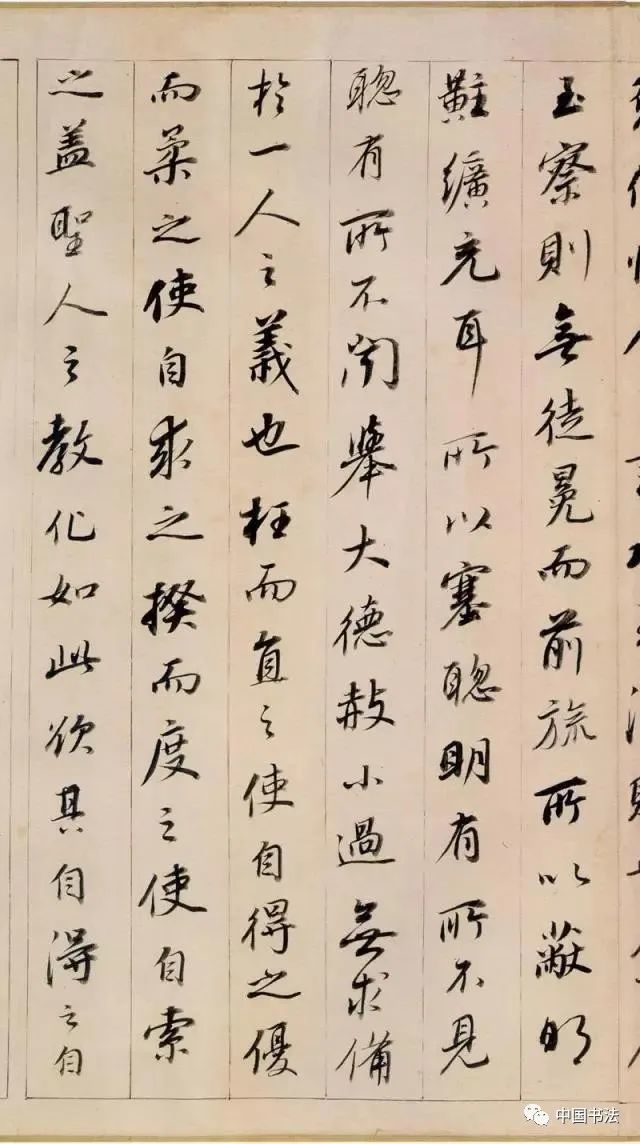 至察則無徒冕而前旒所以蔽明
黈纊充耳所以塞聰明有所不見
聰有所不聞舉大德赦小過無求備
於一人之義也枉而直之使自得之優
而柔之使自求之揆而度之使自索
之盖聖人之教化如此欲其自得之自
中国书法